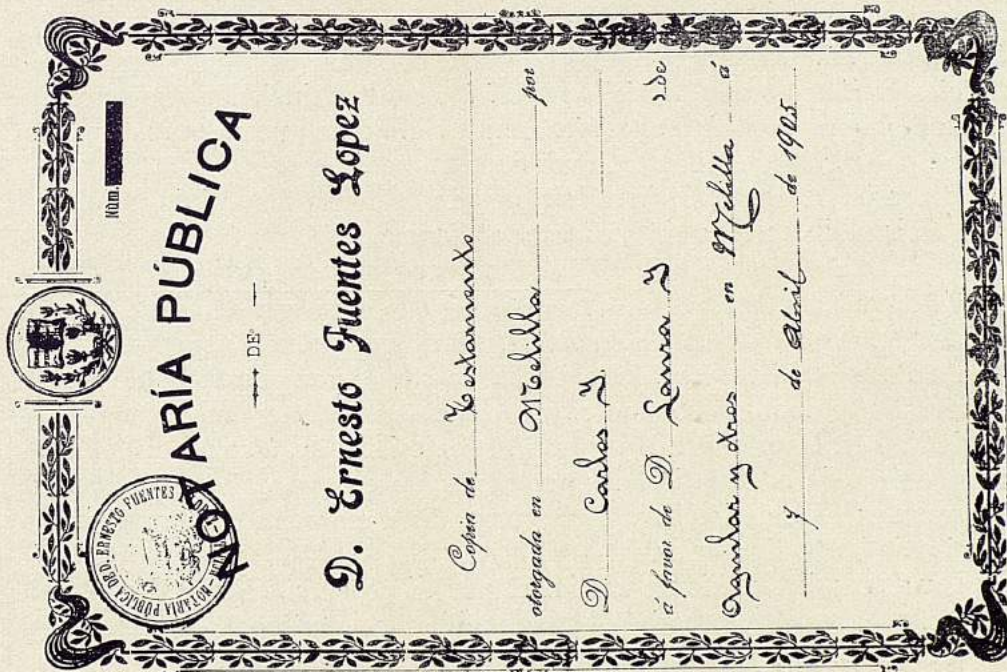 Núm.
NOTARÍA PÚBLICA
DE
D. Ernesto Fuentes Lopez
Copia de Testamento
otorgada en Melilla por
D Carlos Y
á favor de D. Laura Y de
Aguilar y otros en Melilla á
7 de Abril de 1905
NOTARÍA PÚBLICA DE D. ERNESTO FUENTES